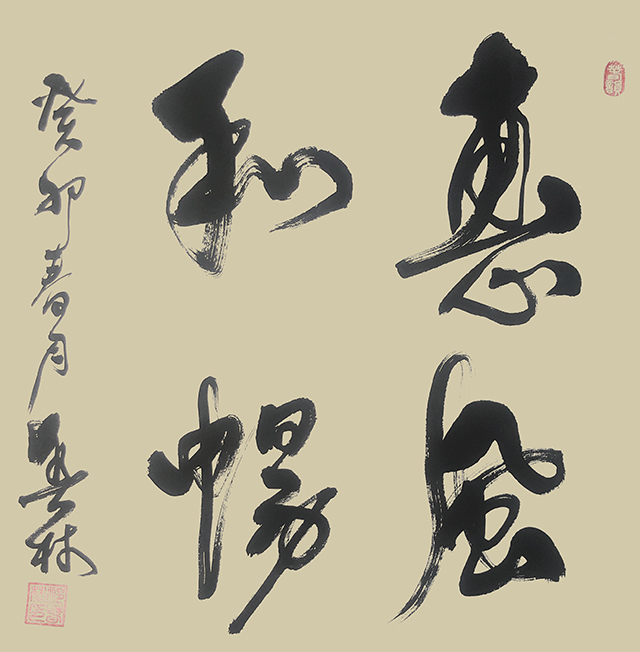 惠風
和暢
癸卯春月 林